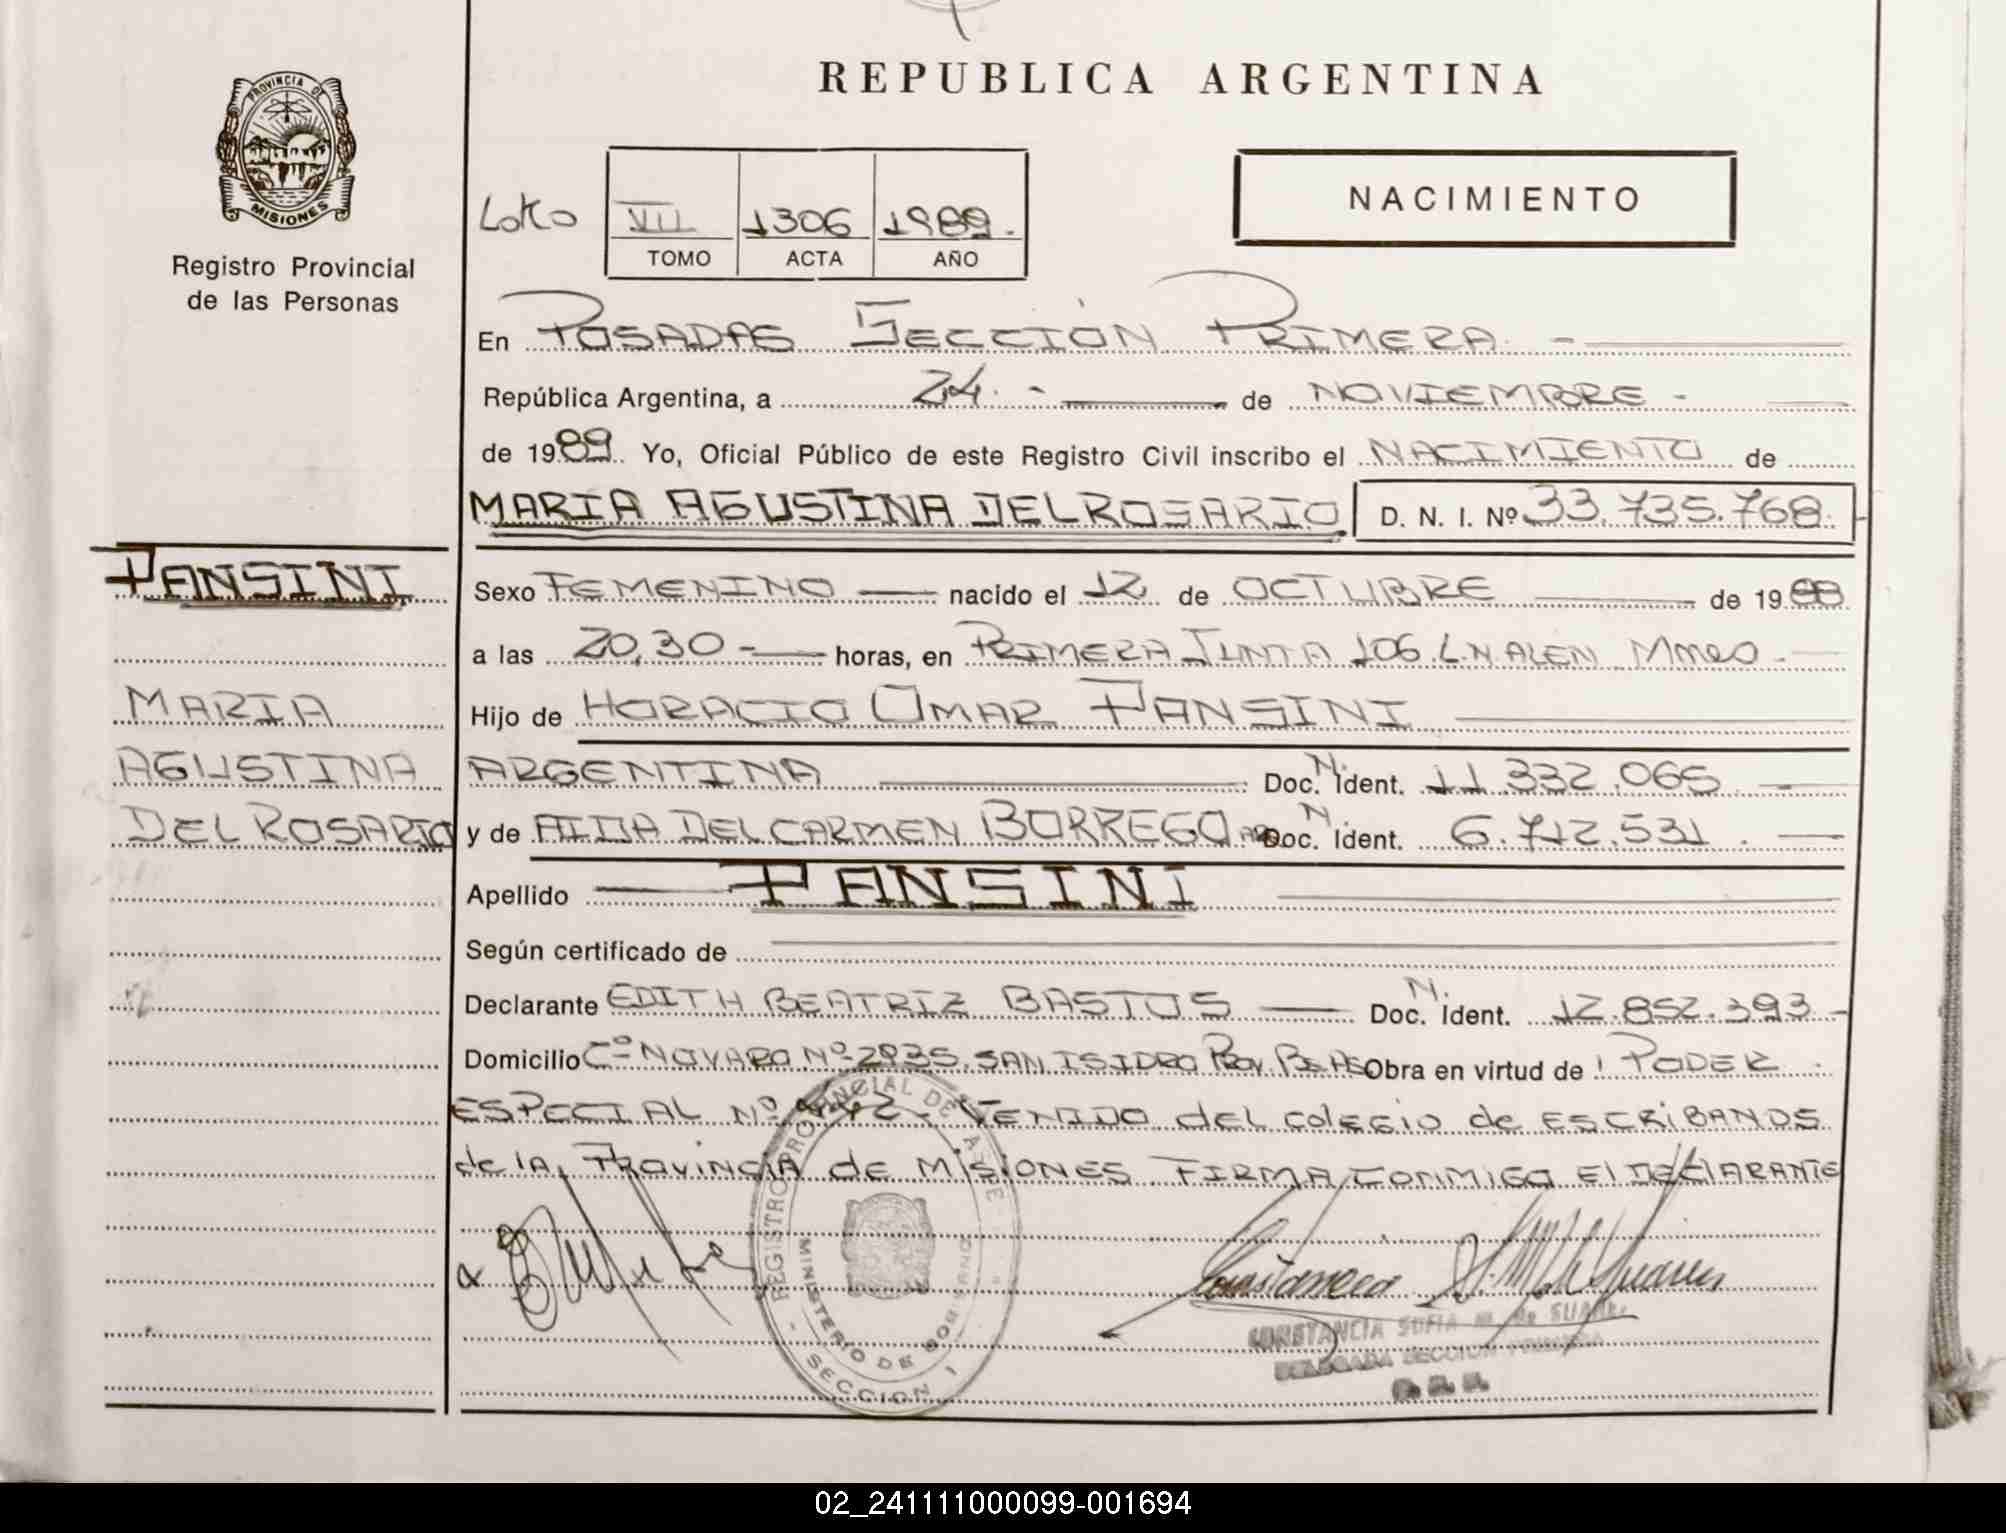 REPUBLICA ARGENTINA
PROVINCIA DE
MISIONES
Registro Provincial
de las Personas
VII 1306 1989.
TOMO ACTA AÑO
NACIMIENTO
En POSADAS SECCIÓN PRIMERA
República Argentina, a 24 de NOVIEMBRE
de 1989 Yo, Oficial Público de este Registro Civil inscribo el NACIMIENTO de
MARIA AGUSTINA DEL ROSARIO D. N. I. Nº 33.735.768
PANSINI
MARIA
AGUSTINA
DEL ROSARIO
Sexo FEMENINO nacido el 12 de OCTUBRE de 19
a las 20,30 horas, en PRIMERA JUNTA 106 L.N ALEN
Hijo de HORACIO OMAR PANSINI
ARGENTINA Doc. N. Ident. 11.332.065
y de AIDA DEL CARMEN BORREGO Doc. N. Ident. 6.712.531
Apellido PANSINI
Según certificado de
Declarante EDITH BEATRIZ BASTOS Doc. N. Ident. 12.852.393
Domicilio Cº NOVARO Nº 2935. SAN ISIDRO PROV. Bs As Obra en virtud de PODER
ESPECIAL Nº VENIDO DEL COLEGIO de ESCRIBANOS
de LA PROVINCIA de MISIONES FIRMA CONMIGO El DEClARANTE
REGISTRO PROVINCIAL DE LAS PERSONAS
MINISTERIO DE GOBIERNO
SECCION I
CONSTANCIA SOFIA M. de SUAREZ
DELEGADA SECCION PRIMERA
02_241111000099-001694